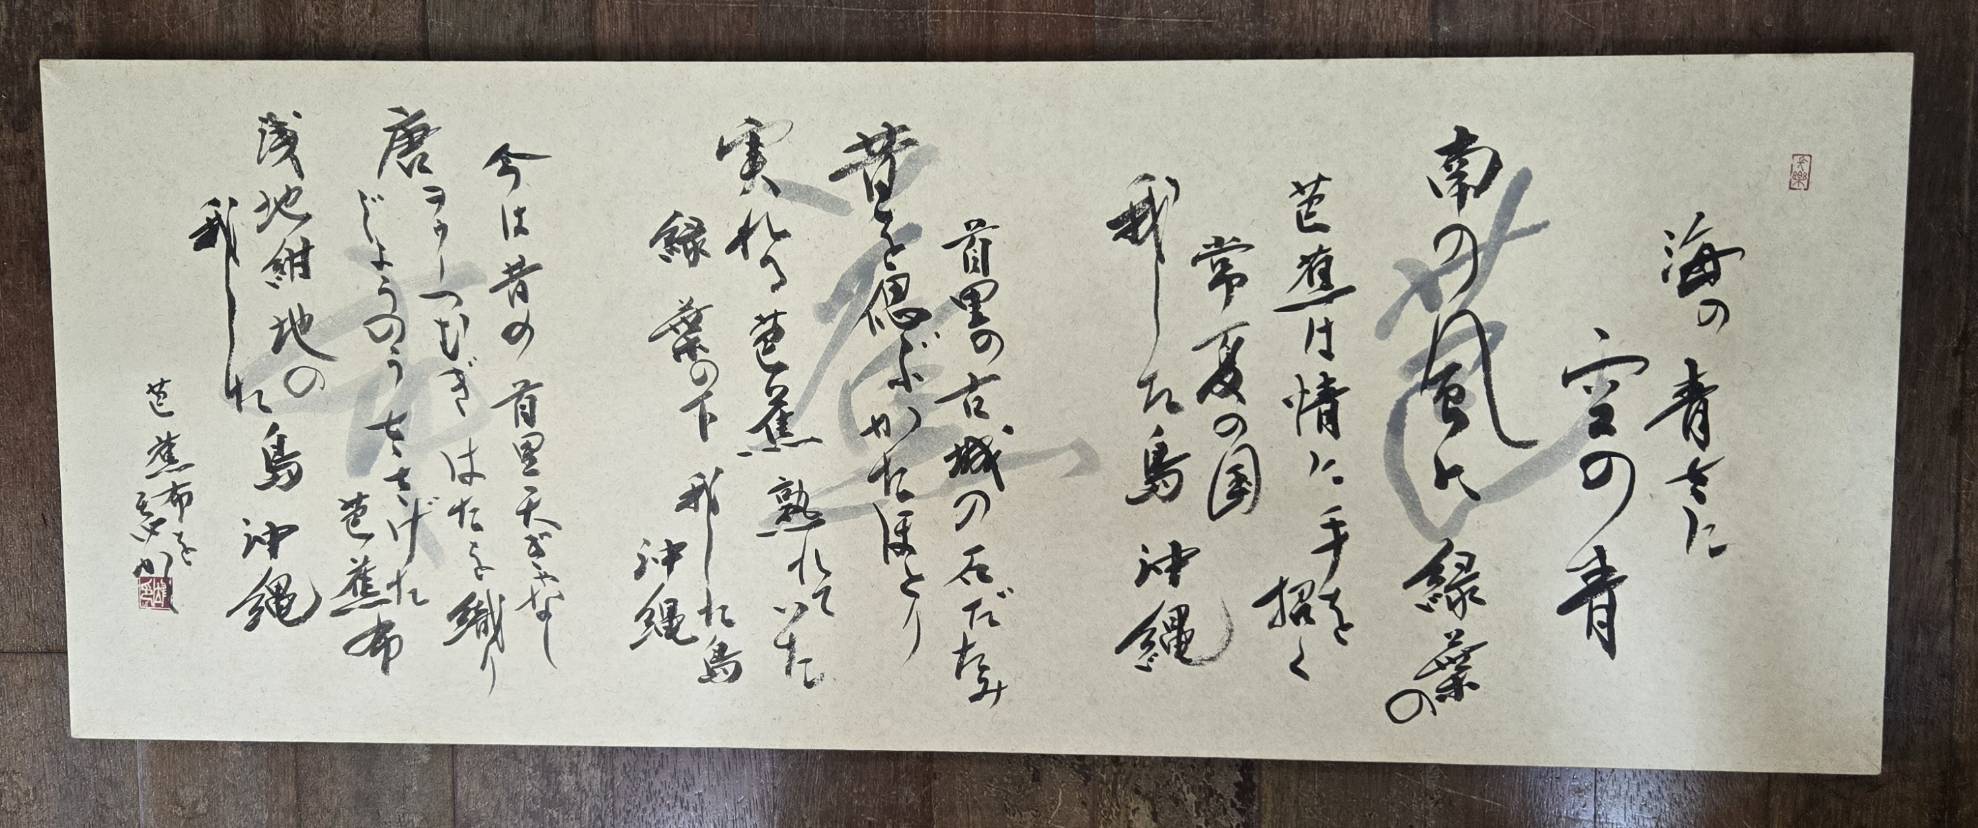 海の青さに
空の青
南の風に緑葉の
芭蕉は情に手を招く
常夏の国
我した島沖縄
首里の古城の石だたみ
昔を偲ぶかたほとり
実れる芭蕉熟れていた
緑葉の下我した島
沖縄
今は昔の首里天ぎゃなし
唐ヲゥーつむぎはたを織り
じょうのうささげた芭蕉布
浅地紺地の
我した島沖縄
芭蕉布を